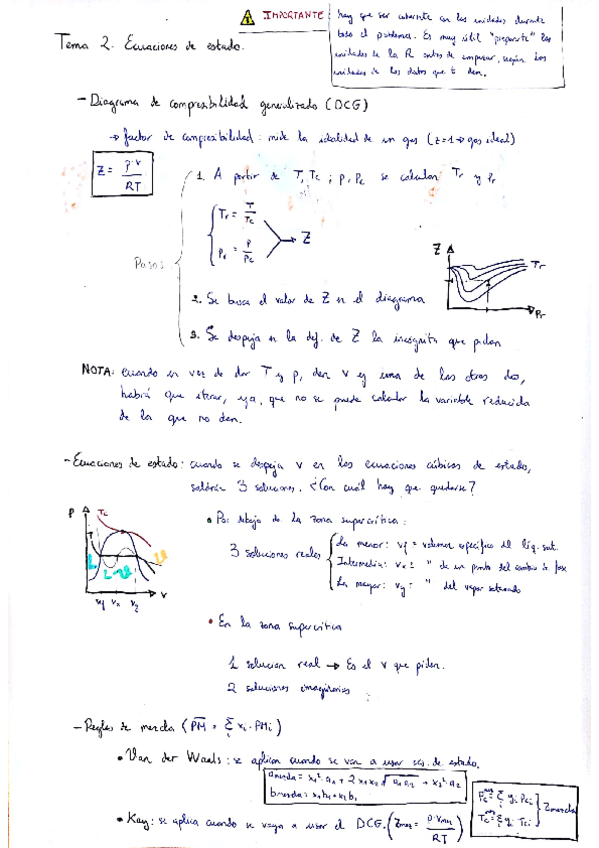 ⚠ IMPORTANTE: hay que ser coherente con las unidades durante
todo el problema. Es muy útil "prepararte" las
unidades de la R antes de empezar, según las
unidades de los datos que te den.
Tema 2. Ecuaciones de estado.
- Diagrama de compresibilidad generalizado (DCG)
→ factor de compresibilidad: mide la idealidad de un gas (z=1 → gas ideal)
Z = p·v / RT
Pasos:
1. A partir de T, Tc ; p, Pc se calculan Tr y Pr
Tr = T / Tc
Pr = P / Pc
→ Z
2. Se busca el valor de Z en el diagrama
Z
Tr
Pr
3. Se despeja en la def. de Z la incógnita que piden
NOTA: cuando en vez de dar T y p, den v y una de las otras dos,
habrá que iterar, ya que no se puede calcular la variable reducida
de la que no den.
- Ecuaciones de estado: cuando se despeja v en las ecuaciones cúbicas de estado,
saldrán 3 soluciones. ¿Con cuál hay que quedarse?
P
Tc
T
L
L-V
V
vf vx vg
v
• Por debajo de la zona supercrítica:
3 soluciones reales
La menor: vf = volumen específico del líq. sat.
Intermedia: vx = " de un punto del cambio de fase
La mayor: vg = " del vapor saturado
• En la zona supercrítica
1 solución real → Es el v que piden.
2 soluciones imaginarias
- Reglas de mezcla (PM = Σ xi · PMi)
• Van der Waals: se aplican cuando se van a usar ecs. de estado.
a mezcla = x1² · a1 + 2 x1 x2 √a1 a2 + x2² · a2
b mezcla = x1 b1 + x2 b2
• Kay: se aplica cuando se vaya a usar el DCG. (Zmez = p·vmez / RT)
Pc mez = Σ yi Pci
Tc mez = Σ yi Tci
Zmezcla